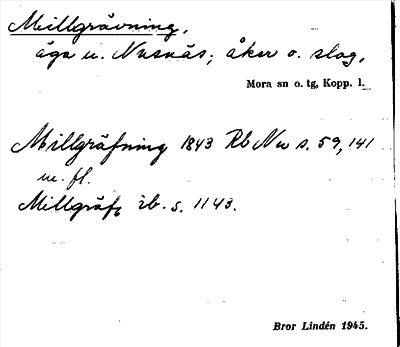 Millgrävning,
äga u. Nusnäs; åker o. slog,
Mora sn o. tg, Kopp. l.
Millgräfning 1843 Rb Nu s. 59, 141
m. fl.
Millgräf, ib. s. 1143.
Bror Lindén 1945.